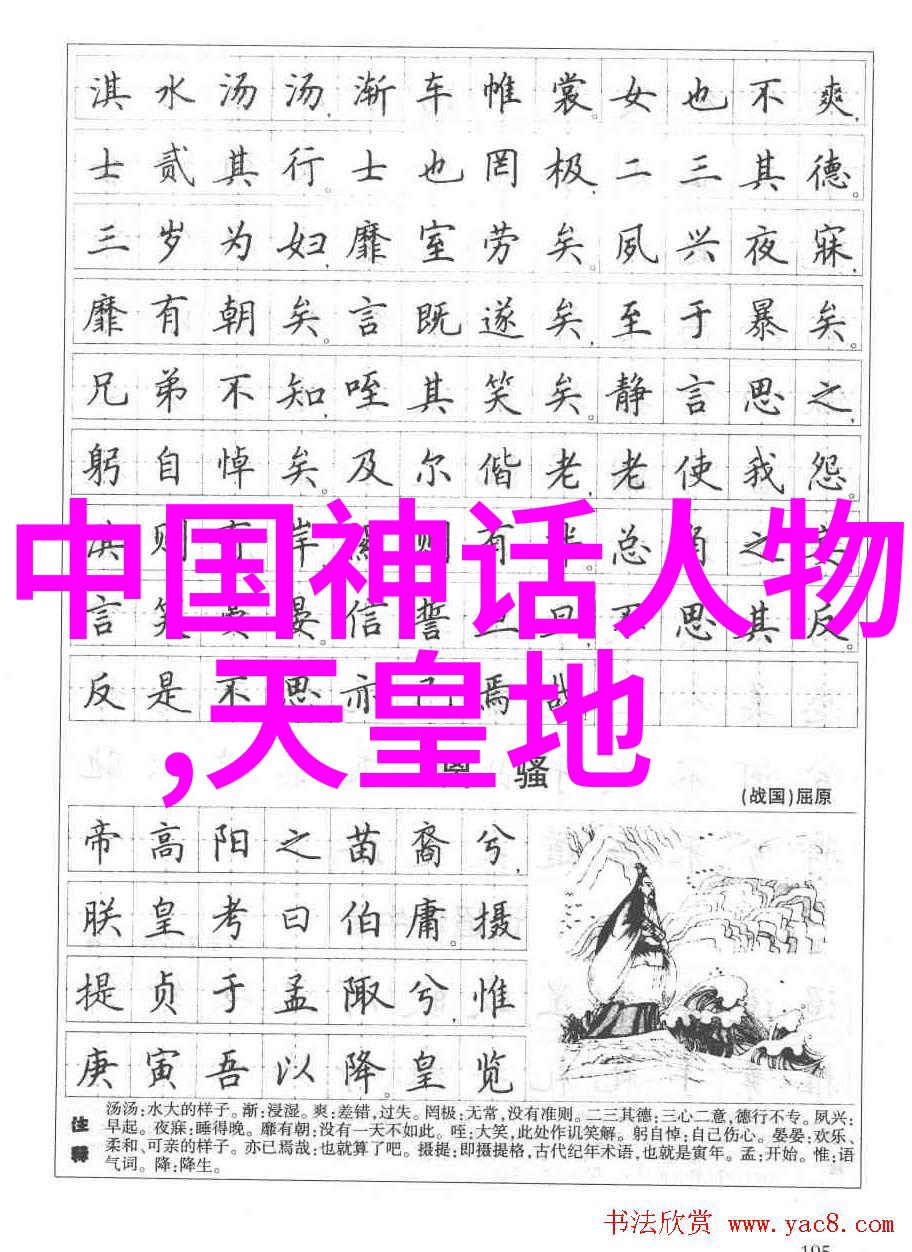 淇水汤汤,渐车帷裳。女也不爽,
士贰其行。士也罔极,二三其德。
三岁为妇,靡室劳矣。夙兴夜寐,
靡有朝矣。言既遂矣,至于暴矣。
兄弟不知,咥其笑矣。静言思之,
躬自悼矣。及尔偕老,老使我怨。
淇则有岸,隰则有泮。总角之宴
言笑晏晏。信誓旦旦,不思其反。
反是不思,亦已焉哉
中国神话人物
,天皇地
离骚
(战国)屈原
帝高阳之苗裔兮,
朕皇考曰伯庸。摄
提贞于孟陬兮,惟
庚寅吾以降。皇览
注释
汤汤:水大的样子。渐:浸湿。爽:差错,过失。罔极:无常,没有准则。二三其德:三心二意,德行不专。夙兴:
早起。夜寐:睡得晚。靡有朝:没有一天不如此。咥:大笑,此处作讥笑解。躬自悼:自己伤心。晏晏:欢乐、
柔和、可亲的样子。亦已焉哉:也就算了吧。摄提:即摄提格,古代纪年术语,也就是寅年。孟:开始。惟:语
气词。降:降生。
书法欣赏 www.yac8.com